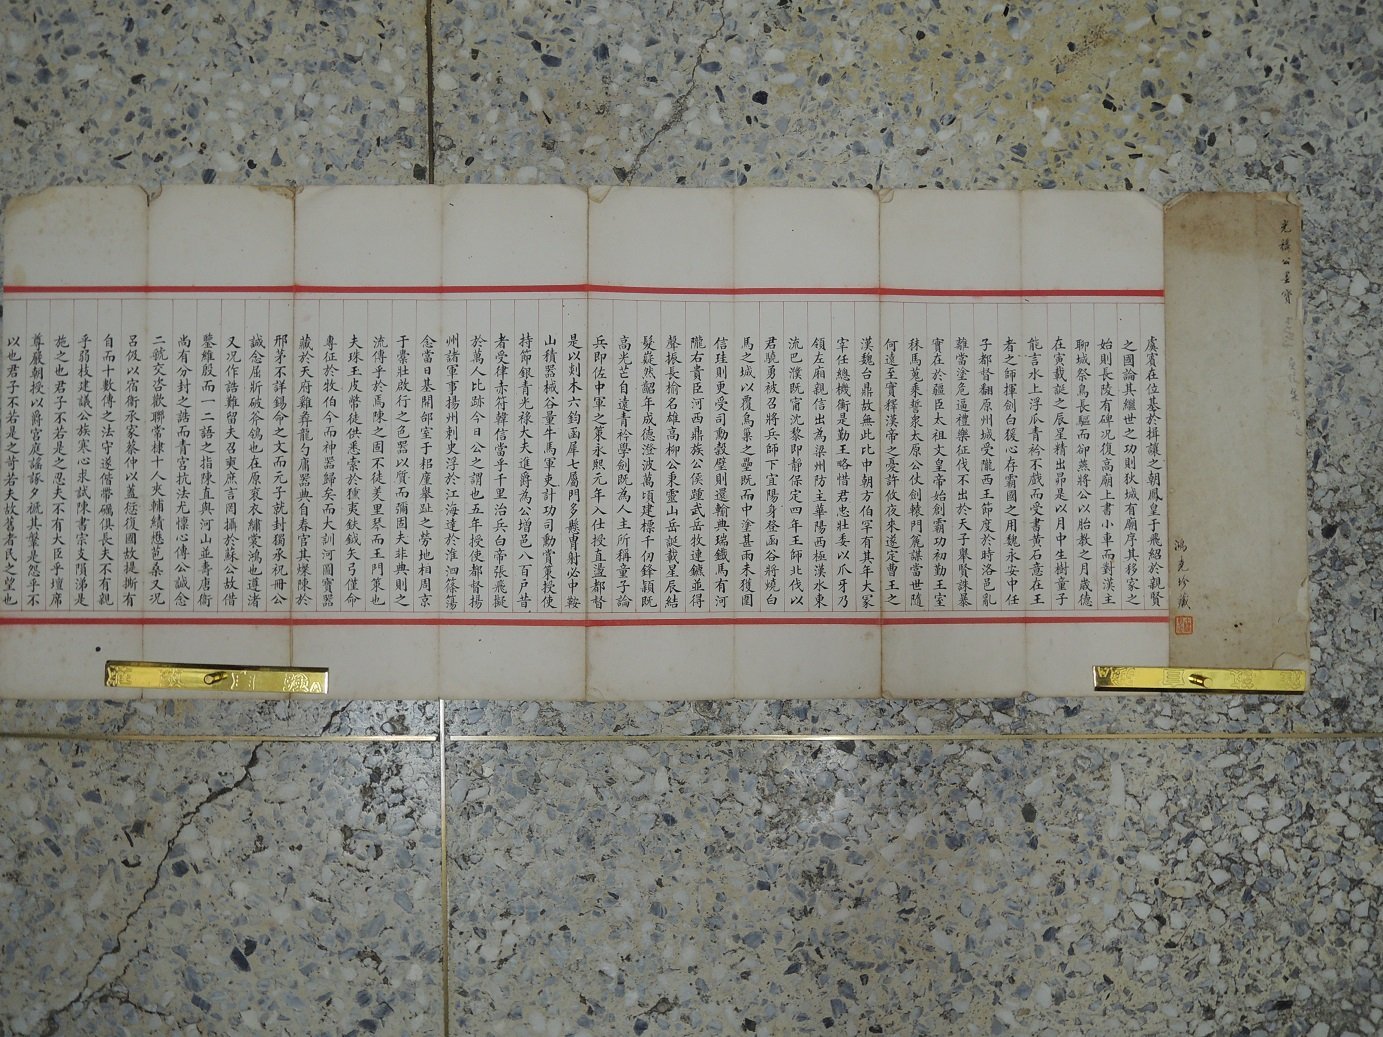 光稷公墨寶
鴻堯珍藏
虞賓在位基於揖讓之朝鳳皇于飛紹於親賢
之國論其繼世之功則狄城有廟序其移家之
始則長陵有碑況復高廟上書小車而對漢主
聊城祭鳥長驅而卻燕將公以胎教之月歲德
在寅載誕之辰星精出昴是以月中生樹童子
能言水上浮瓜青衿不戲而受書黃石意在王
者之師揮劍白猨心存霸國之用魏永安中任
子都督翻原州城受隴西王節度於時洛邑亂
離當塗危逼禮樂征伐不出於天子舉賢誅暴
實在於疆臣太祖文皇帝始創霸功初勤王室
秣馬蒐乘誓衆太原公仗劍轅門麾謀當世隨
何遠至實釋漢帝之憂許攸夜來遂定曹王之
漢魏台鼎故無此比中朝方伯罕有其年大冢
宰任總機衡是勤王略惜君忠壯委以爪牙乃
領左廂親信出為梁州防主華陽西極漢水東
流巴濮既甯沈黎即靜保定四年王師北伐以
君驍勇被召將兵師下宜陽身登函谷將燒白
馬之城以覆烏巢之壘既而中塗甚雨未獲圍
信珪則更受司勳穀璧則還輸典瑞鐵馬有河
隴右貴臣河西鼎族公侯踵武岳牧連鑣並得
聲振長榆名雄高柳公秉靈山岳誕載星辰結
髮嶷然韶年成德澄波萬頃建標千仞鋒穎既
高光芒自遠青衿學劍既為人主所稱童子論
兵即佐中軍之策永熙元年入仕授直盪都督
是以剡木六鈞函犀七屬門多縣胄射必中鞍
山積器械谷量牛馬軍吏計功司勳賞策授使
持節銀青光祿大夫進爵為公增邑八百戶昔
者受律赤符韓信當乎千里治兵白帝張飛擬
於萬人比跡今日公之謂也五年授使都督揚
州諸軍事揚州刺史浮於江海達於淮泗篠簜
念當日基開郃室于招廑舉趾之勞地相周京
于橐壯啟行之色器以質而彌固夫非典則之
流傳乎於馬陳之固不徒羑里琴而王門策也
夫珠玉皮幣徒供悉索於獯夷鈇鉞矢弓僅命
專征於牧伯今而神器歸矣而大訓河圖寶器
藏於天府雞彝龍勺庸器典自春官其爍陳於
邢茅不詳錫命之文而元子就封獨承祝冊公
誠念屈斨破斧鴒也在原袞衣繡裳鴻也遵渚
又況作誥難留夫召奭庶言罔攝於蘇公故借
鑒維殷而一二語之指陳直與河山並壽唐衛
尚有分封之誥而青宮抗法尤懷心傳公誠念
二號交咨歡聯常棣十人夾輔績懋苞桑又況
呂伋以宿衛承家蔡仲以蓋愆復國故提撕有
自而十數傳之法守遂偕帶礪俱長夫不有親
乎弱枝建議公族寒心求試陳書宗支隕涕是
施之也君子不若是之忍夫不有大臣乎壇席
尊嚴朝授以爵宮庭謠諑夕褫其鞶是怨乎不
以也君子不若是之苛若夫故舊者民之望也